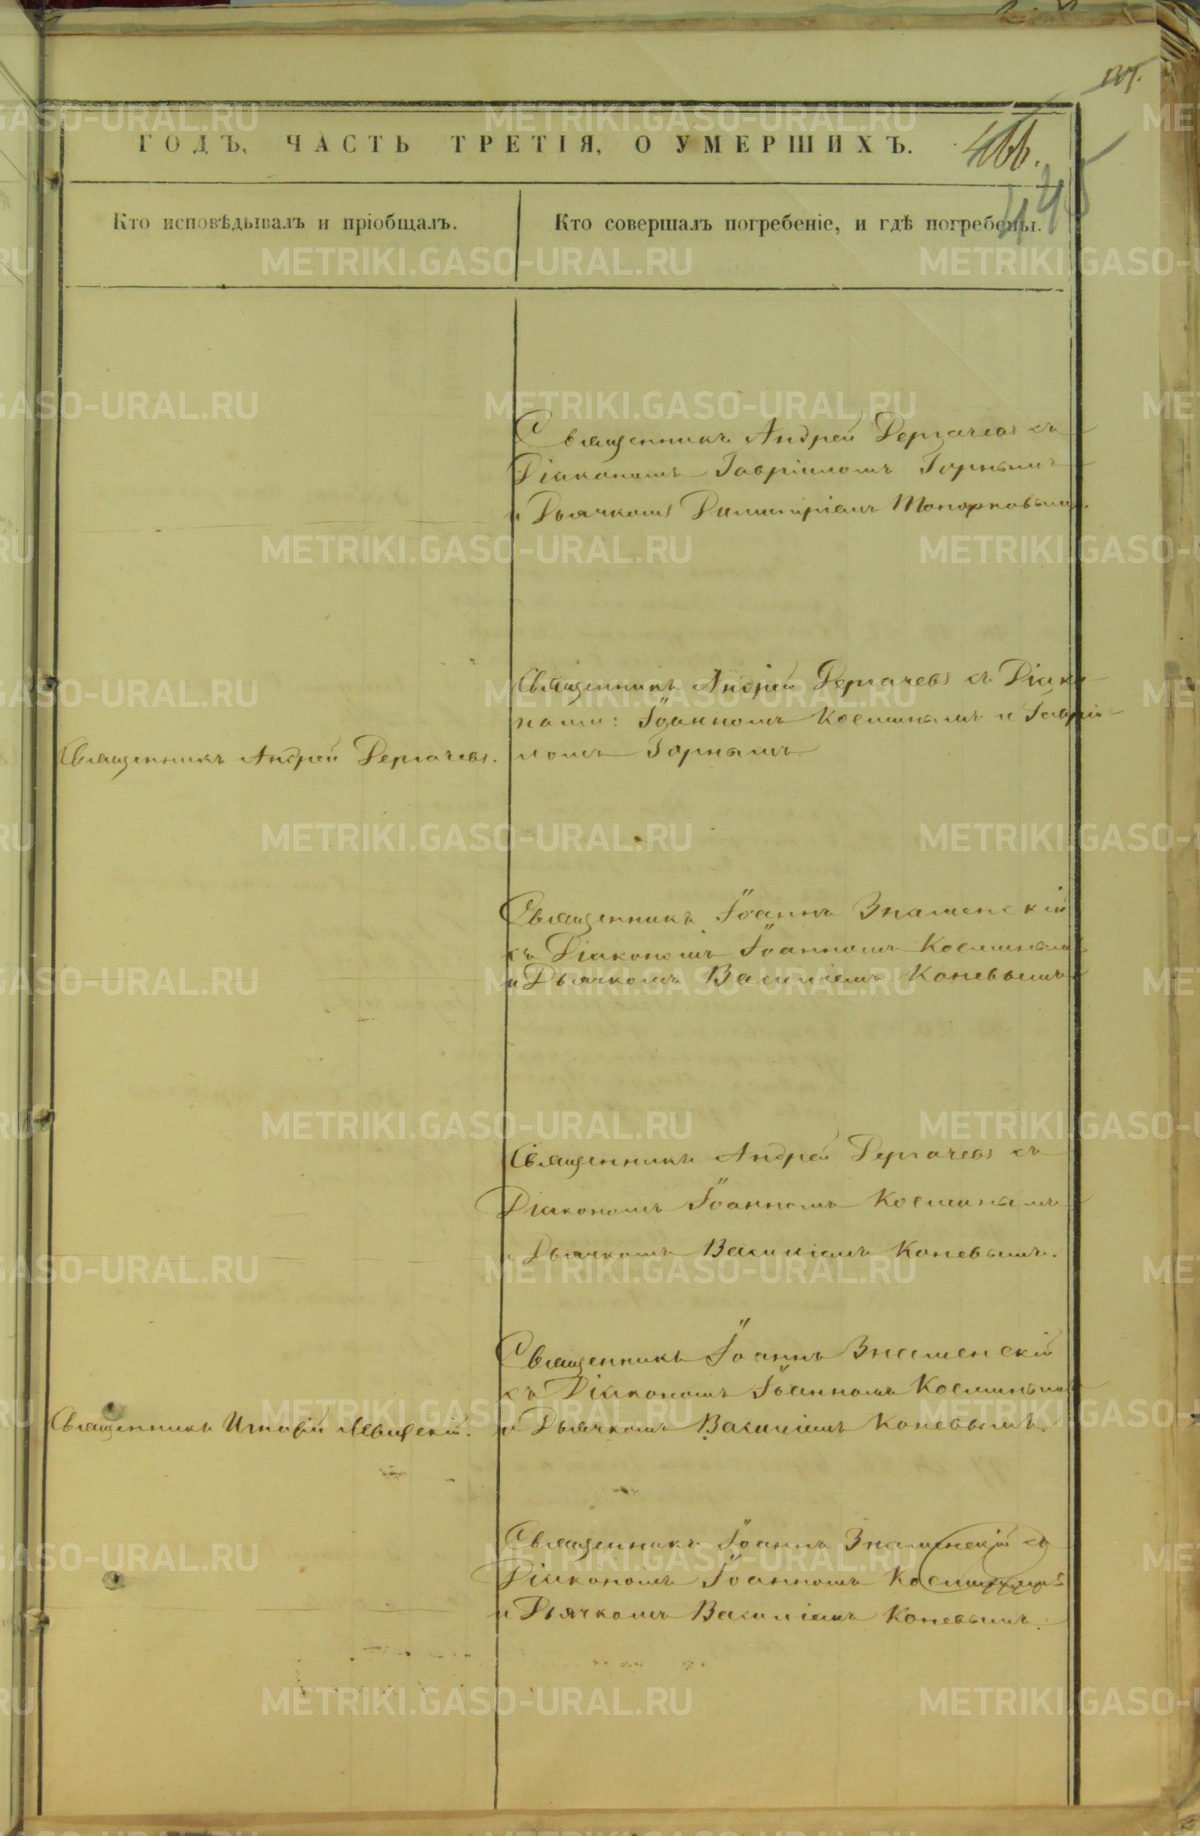 ГОДЪ, ЧАСТЬ ТРЕТІЯ, О УМЕРШИХЪ. 466.
Кто исповѣдывалъ и пріобщалъ.
Кто совершалъ погребеніе, и гдѣ погребены.
Священникъ Андрей Дергачевъ съ
Діакономъ Гавріиломъ Горнымъ
и Дьячкомъ Димитріемъ Топорковымъ.
Священникъ Андрей Дергачевъ съ Діако-
нами: Іоанномъ Косминымъ и Гавріи-
ломъ Горнымъ.
Священникъ Андрей Дергачевъ.
Священникъ Іоаннъ Знаменскій
съ Діакономъ Іоанномъ Косминымъ
и Дьячкомъ Василіемъ Коневымъ
Священникъ Андрей Дергачевъ съ
Діакономъ Іоанномъ Косминымъ
и Дьячкомъ Василіемъ Коневымъ.
Священникъ Іоаннъ Знаменскій
съ Діакономъ Іоанномъ Косминымъ
и Дьячкомъ Василіемъ Коневымъ.
Священникъ Игнатій Левицкій.
Священникъ Іоаннъ Знаменскій съ
Діакономъ Іоанномъ Косминымъ
и Дьячкомъ Василіемъ Коневымъ.
METRIKI.GASO-URAL.RU